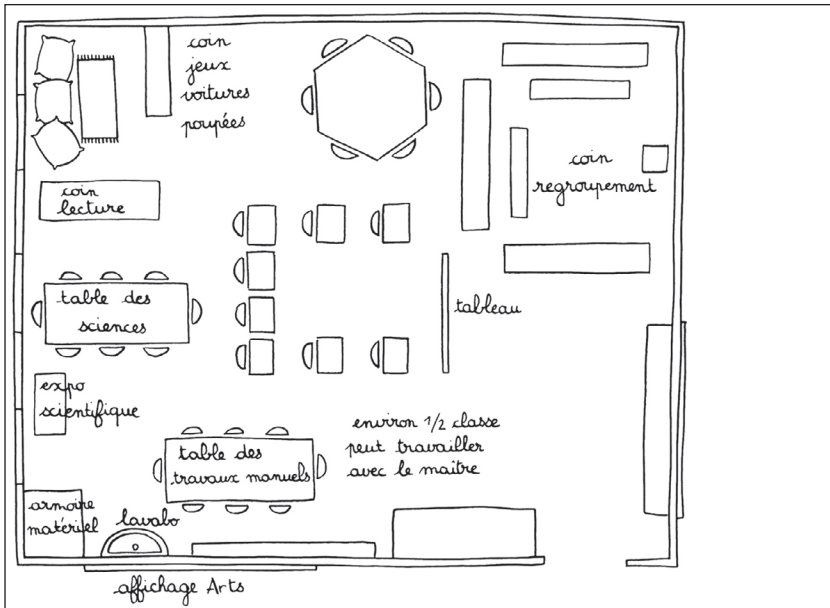 coin
jeux
voitures
poupées
coin
regroupement
coin
lecture
table des
sciences
tableau
expo
scientifique
environ 1/2 classe
peut travailler
avec le maître
table des
travaux manuels
armoire
matériel
lavabo
affichage Arts